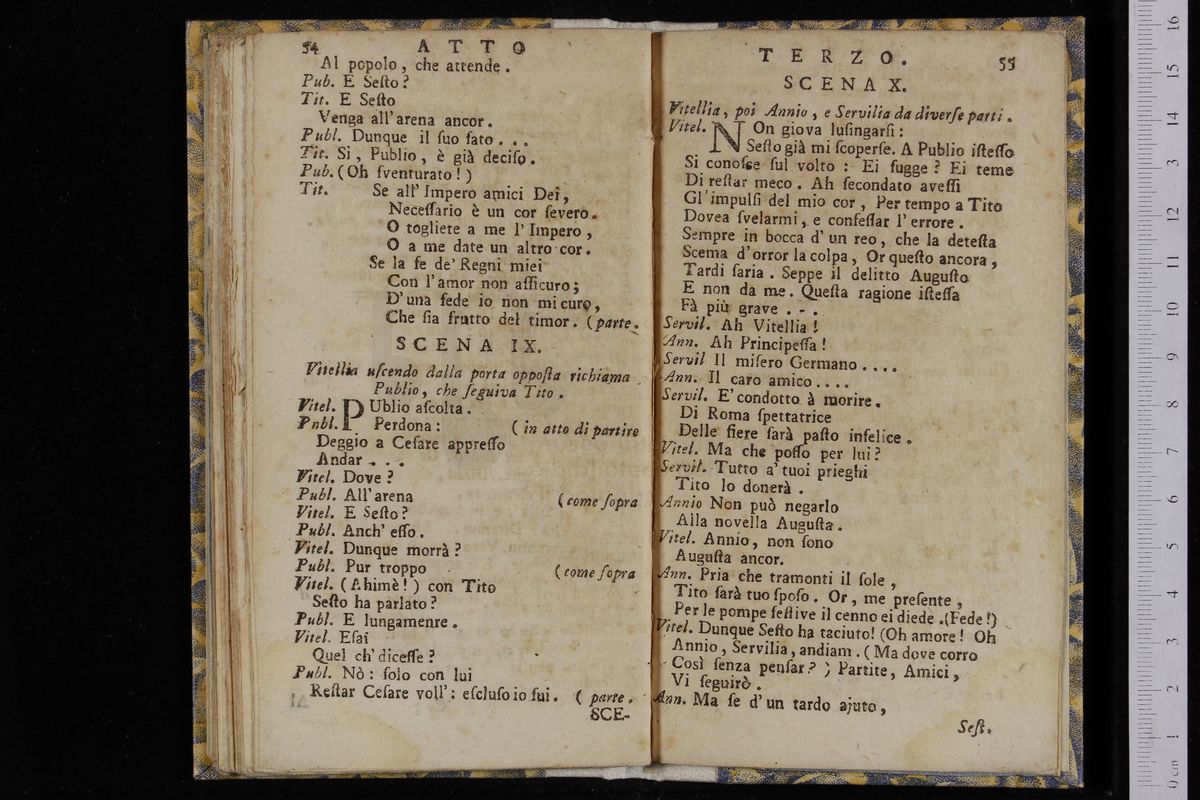 54 ATTO
Al popolo, che attende.
Pub. E Seſto?
Tit. E Seſto
Venga all'arena ancor.
Publ. Dunque il ſuo fato...
Tit. Si, Publio, è già deciſo.
Pub. (Oh ſventurato!)
Tit. Se all' Impero amici Dei,
Neceſſario è un cor ſevero.
O togliete a me l'Impero,
O a me date un altro cor.
Se la fe de' Regni miei
Con l'amor non aſſicuro;
D'una fede io non mi curo,
Che ſia frutto del timor. (parte.
SCENA IX.
Vitellia uſcendo dalla porta oppoſta richiama
Publio, che ſeguiva Tito.
Vitel. PUblio aſcolta.
Pnbl. Perdona: (in atto di partire
Deggio a Ceſare appreſſo
Andar...
Vitel. Dove?
Publ. All'arena (come ſopra
Vitel. E Seſto?
Publ. Anch' eſſo.
Vitel. Dunque morrà?
Publ. Pur troppo (come ſopra
Vitel. (Ahimè!) con Tito
Seſto ha parlato?
Publ. E lungamenre.
Vitel. Eſai
Quel ch' diceſſe?
Publ. Nò: ſolo con lui
Reſtar Ceſare voll': eſcluſo io fui. (parte.
SCE-
TERZO. 55
SCENA X.
Vitellia, poi Annio, e Servilia da diverſe parti.
Vitel. NOn giova luſingarſi:
Seſto già mi ſcoperſe. A Publio iſteſſo
Si conoſce ſul volto: Ei fugge? Ei teme
Di reſtar meco. Ah ſecondato aveſſi
Gl'impulſi del mio cor, Per tempo a Tito
Dovea ſvelarmi, e confeſſar l'errore.
Sempre in bocca d'un reo, che la deteſta
Scema d'orror la colpa, Or queſto ancora,
Tardi ſaria. Seppe il delitto Auguſto
E non da me. Queſta ragione iſteſſa
Fà più grave...
Servil. Ah Vitellia!
Ann. Ah Principeſſa!
Servil Il miſero Germano....
Ann. Il caro amico....
Servil. E'condotto à morire.
Di Roma ſpettatrice
Delle fiere ſarà paſto infelice.
Vitel. Ma che poſſo per lui?
Servil. Tutto a' tuoi prieghi
Tito lo donerà.
Annio Non può negarlo
Alla novella Auguſta.
Vitel. Annio, non ſono
Auguſta ancor.
Ann. Pria che tramonti il ſole,
Tito ſarà tuo ſpoſo. Or, me preſente,
Per le pompe feſtive il cenno ei diede.(Fede!)
Vitel. Dunque Seſto ha taciuto! (Oh amore! Oh
Annio, Servilia, andiam. (Ma dove corro
Così ſenza penſar?) Partite, Amici,
Vi ſeguirò.
Ann. Ma ſe d'un tardo ajuto,
Seſt.
0 cm 1 2 3 4 5 6 7 8 9 10 11 12 13 14 15 16